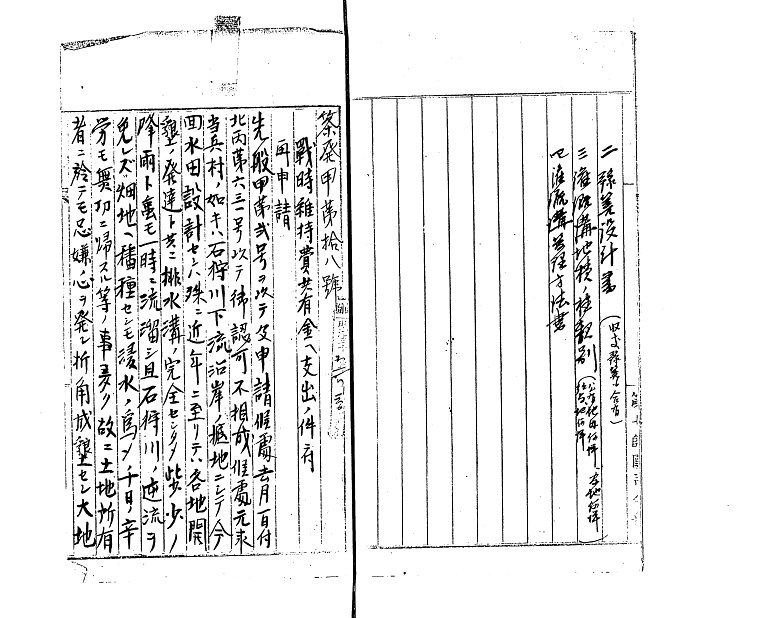 二 予算設計書（収支予算ヲ含有）
三 灌漑溝地積ノ種類別
四 灌漑溝管理方法書
第七師団司令部
築発甲第拾八号
戦時維持費共有金ヘ支出ノ件ニ付
再申請
先般甲第弐号ヲ以テ及申請候處去月一日付
北丙第六三一号以テ御認可不相成候處元来
当兵村ノ如キハ石狩川下流沿岸ノ
地ニシテ今
回水田設計セシハ殊ニ近年ニ至リテハ各地開
墾ノ発達ト共ニ排水溝ノ完全セシタメ些少ノ
降雨ト雖モ一時ニ流溜シ且石狩川ノ逆流ヲ
免レズ畑地ヘ播種センモ浸水ノ為メ千日ノ辛
労モ無功ニ帰スル等ノ事多ク故ニ土地所有
者ニ於テモ忌嫌ノ心ヲ発シ折角成墾セシ大地